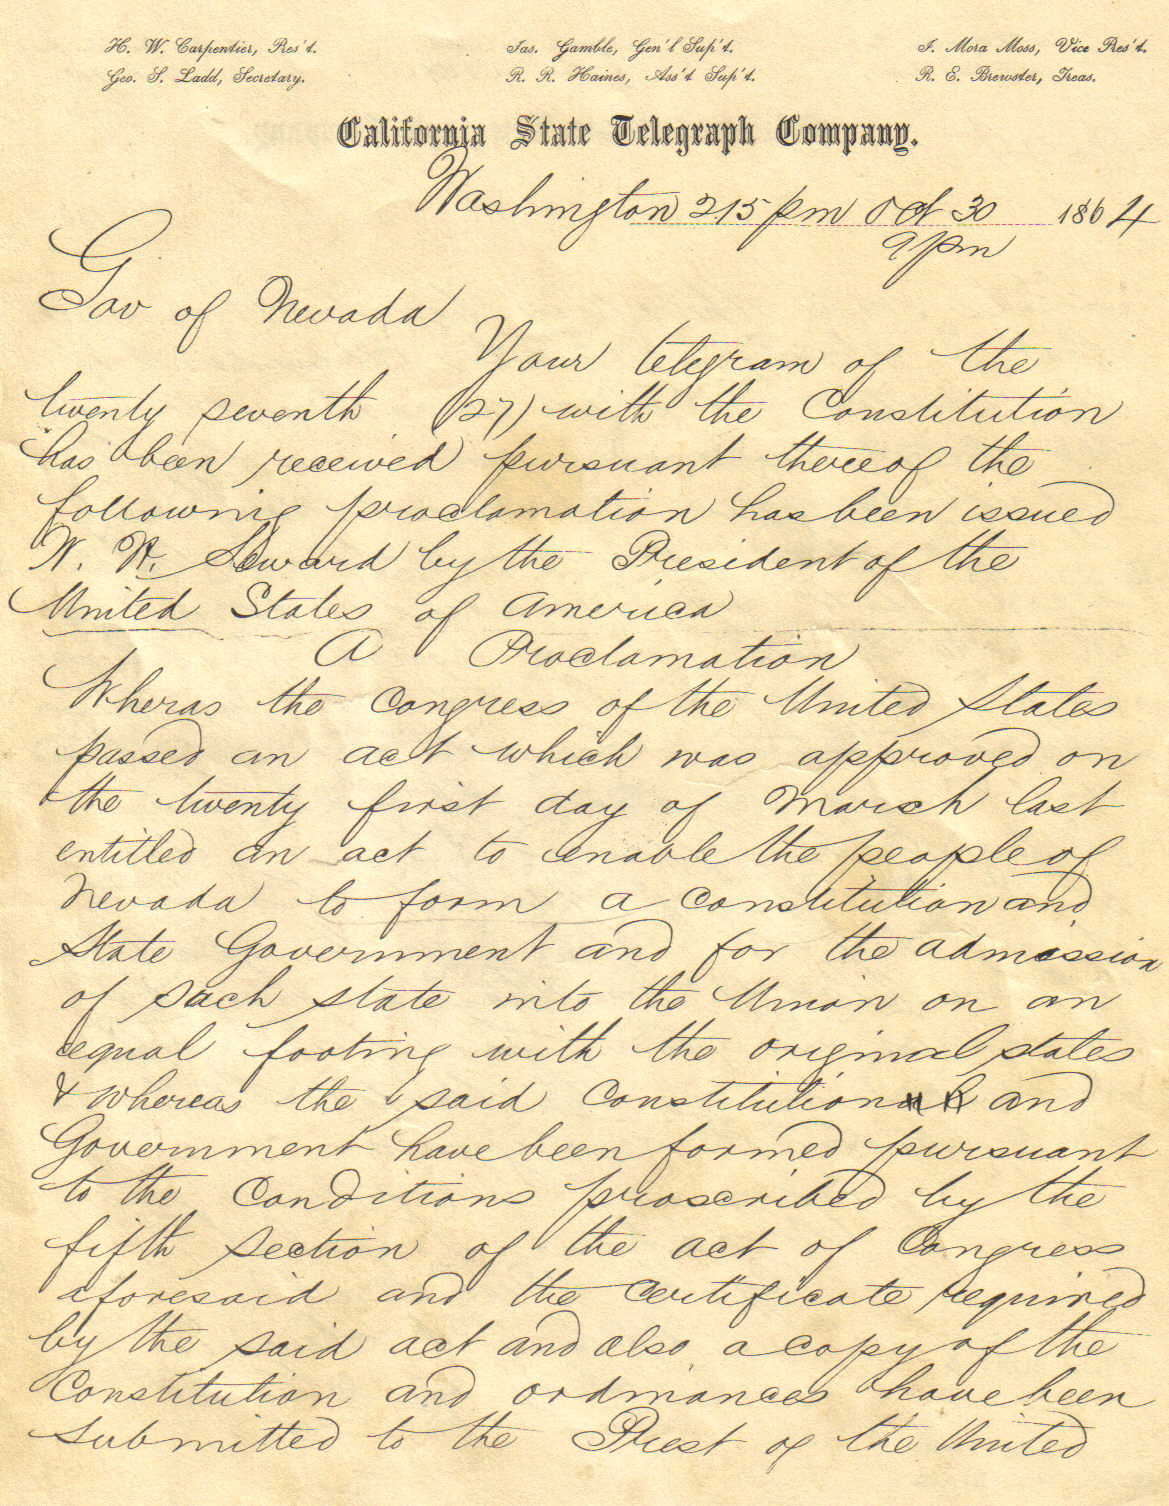 H. W. Carpentier, Pres't.
Geo. S. Ladd, Secretary.
Jas. Gamble, Gen'l Sup't.
R. R. Haines, Ass't Sup't.
F. Mora Moss, Vice Pres't.
R. E. Brewster, Treas.
California State Telegraph Company.
Washington 215 pm Oct 30 1864
9pm
Gov of Nevada
Your telegram of the
twenty seventh (27) with the Constitution
has been received pursuant thereof the
following proclamation has been issued
W. H. Seward by the President of the
United States of America
A Proclamation
Wheras the Congress of the United States
passed an act which was approved on
the twenty first day of March last
entitled an act to enable the people of
Nevada to form a Constitution and
State Government and for the admission
of such state into the Union on an
equal footing with the original states
& whereas the said Constitution and
Government have been formed pursuant
to the Conditions proscribed by the
fifth section of the act of Congress
aforesaid and the Certificate required
by the said act and also a copy of the
Constitution and ordinances have been
submitted to the Prest of the United